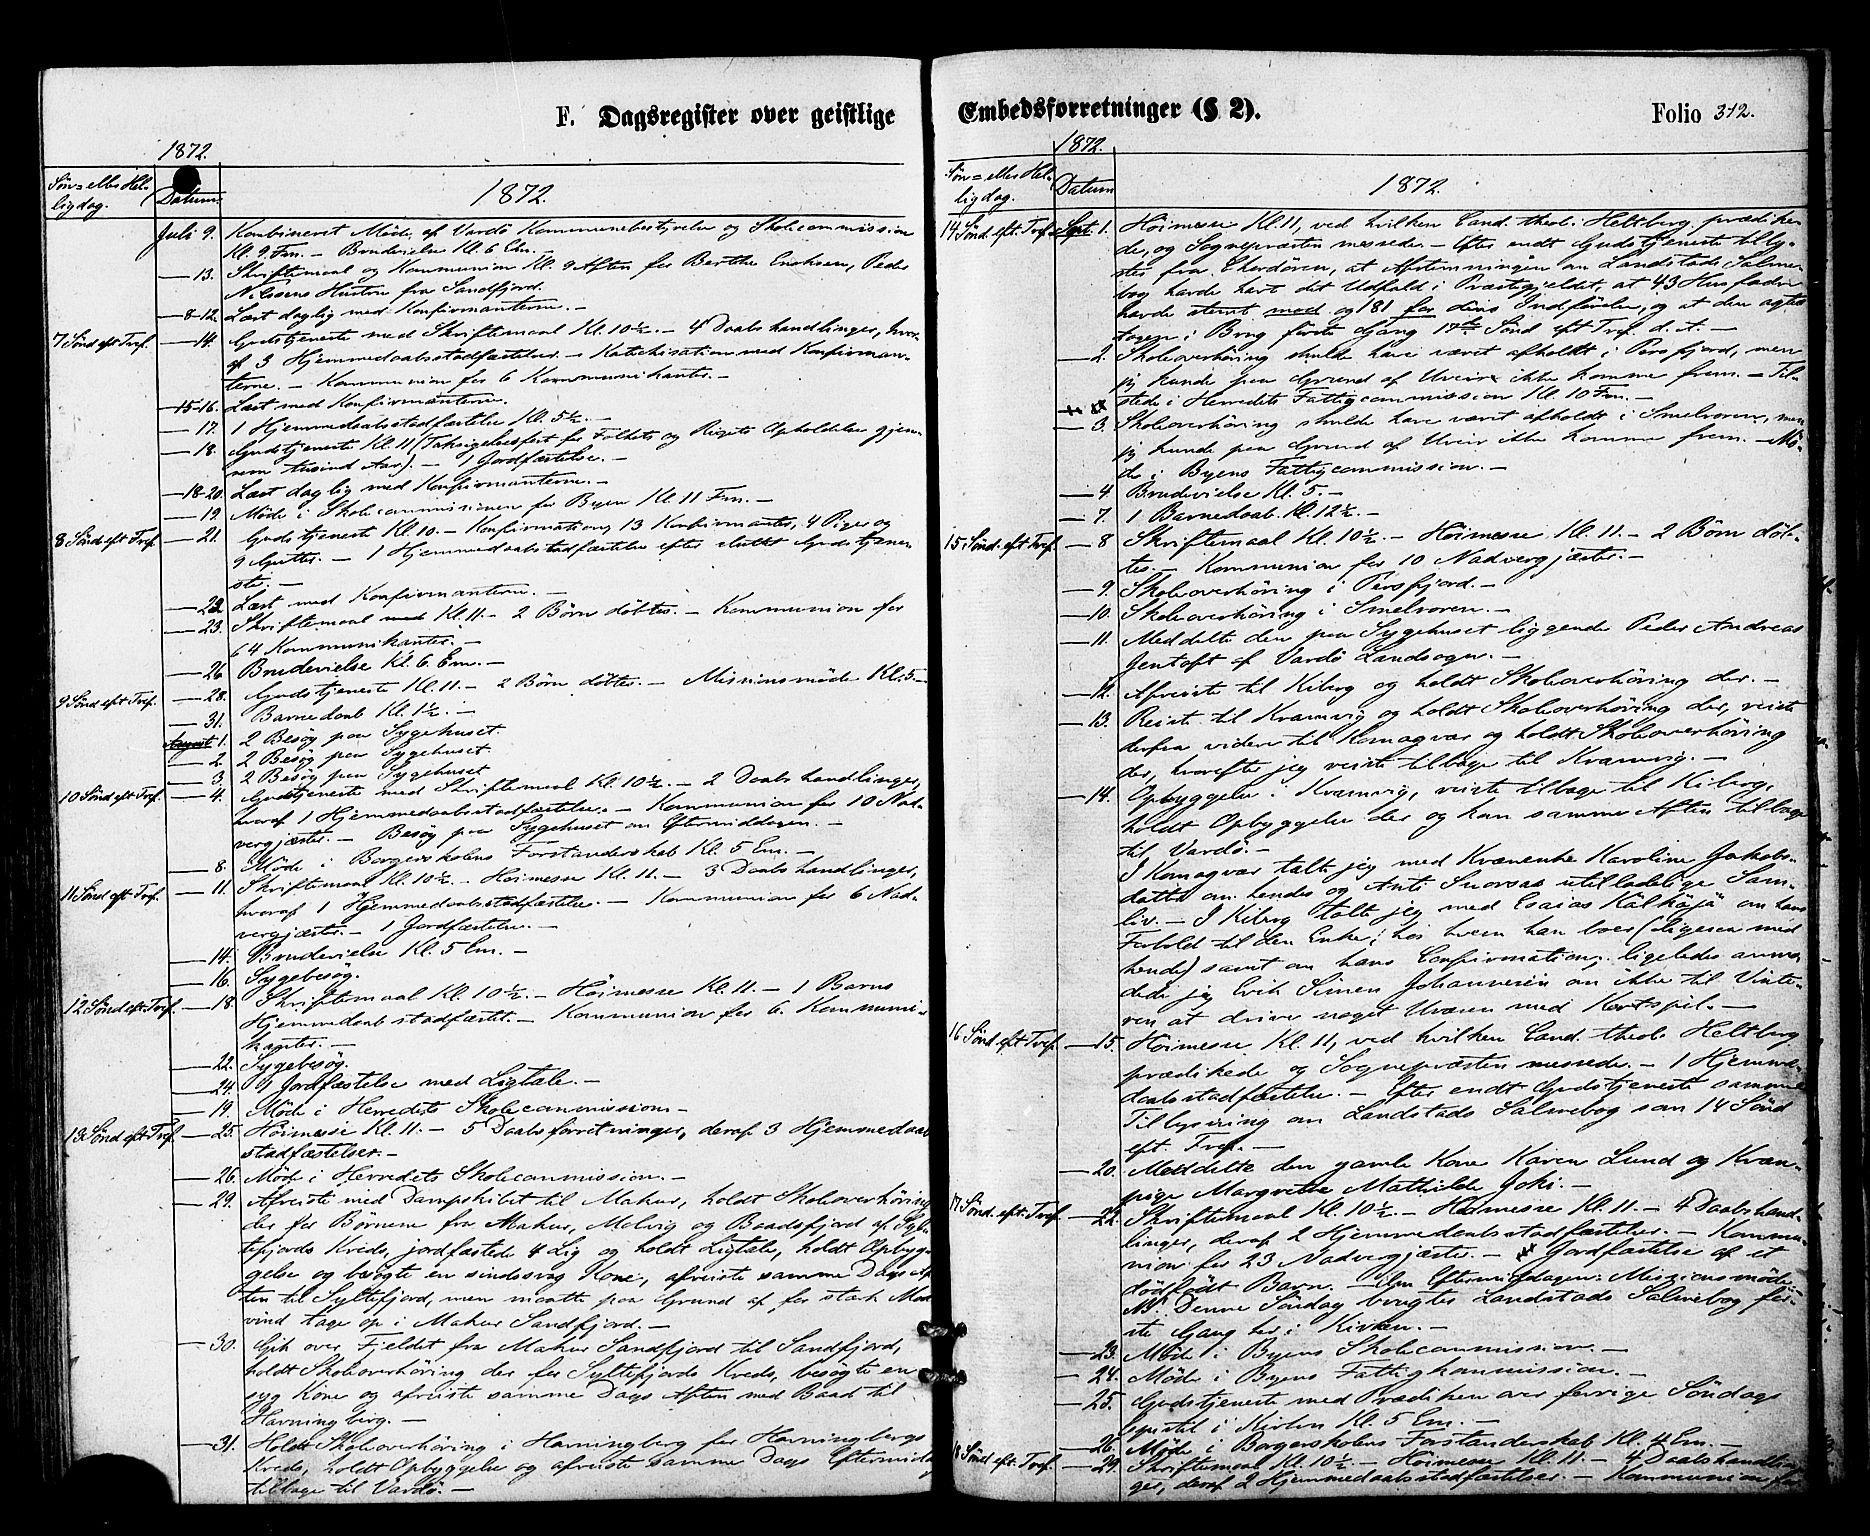 F. Dagsregister over geistlige
1872.
Søn= eller Hel-
ligdag.
Datum.
1872.
Juli 9. Kombineret Møde af Vardø Kommunebestyrelse og Skolecommission
Kl. 9 Fm. - Brudevielse Kl. 6 Em. -
- 13. Skriftemaal og Kommunion Kl. 9 Aften for Berthe Enoksen, Peder
Nilssens Hustru fra Sandfjord.
- 8-12. Læst daglig med Konfirmanterne. -
7 Sönd. eft. Tref. - 14. Gudstjeneste med Skriftemaal Kl. 10½. - 4 Daabshandlinger, hvor-
af 3 Hjemmedaabsstadfæstelser. - Katekisation med Konfirman-
terne. - Kommunion for 6 Kommunikanter. -
- 15-16. Læst med Konfirmanterne.
- 17. 1 Hjemmedaabsstadfæstelse Kl. 5½. -
- 18. Gudstjeneste Kl. 11 (Taksigelsesfest for Folkets og Rigets Opholdelse gjen-
nem tusind Aar). - 1 Jordfæstelse. -
- 18-20. Læst daglig med Konfirmanterne. -
- 19. Møde i Skolecommissionen for Byen Kl. 11 Fm. -
8 Sönd. eft. Tref. - 21. Gudstjeneste Kl. 10. - Konfirmation, 13 Konfirmanter, 4 Piger og
9 Gutter. - 1 Hjemmedaabsstadfæstelse efter sluttet Gudstjene-
ste. -
- 22. Læst med Konfirmanterne. -
- 23. Skriftemaal med Kl. 11. - 2 Börn döbtes. - Kommunion for
64 Kommunikanter. -
- 26. Brudevielse Kl. 6 Em. -
9 Sönd. eft. Tref. - 28. Gudstjeneste Kl. 11. - 2 Börn döbtes. - Missionsmöde Kl. 5. -
- 31. Barnedaab Kl. 1½. -
August 1. 2 Besög paa Sygehuset.
- 2. 2 Besög paa Sygehuset
- 3. 2 Besög paa Sygehuset
10 Sönd. eft. Tref. - 4. Gudstjeneste med Skriftemaal Kl. 10½. - 2 Daabshandlinger,
hvoraf 1 Hjemmedaabsstadfæstelse. - Kommunion for 10 Nad-
vergjæster. - Besög paa Sygehuset om Eftermiddagen. -
- 8. Möde i Borgerskolens Forstanderskab Kl. 5 Em. -
11 Sönd. eft. Tref. - 11. Skriftemaal Kl. 10½. - Höimesse Kl. 11. - 3 Daabshandlinger,
hvoraf 1 Hjemmedaabsstadfæstelse. - Kommunion for 6 Nad-
vergjæster. - 1 Jordfæstelse. -
- 14. Brudevielse Kl. 5 Em. -
- 16. Sygebesög.
12 Sönd. eft. Tref. - 18. Skriftemaal Kl. 10½. - Höimesse Kl. 11. - 1 Barns
Hjemmedaab stadfæstet. - Kommunion for 6 Kommuni-
kanter. -
- 22. Sygebesög.
- 24. 1 Jordfæstelse med Ligtale. -
- 19. Möde i Herredets Skolecommission. -
13 Sönd. eft. Tref. - 25. Höimesse Kl. 11. - 5 Daabsforretninger, deraf 3 Hjemmedaabs-
stadfæstelser. -
- 26. Möde i Herredets Skolecommission. -
- 29. Afreiste med Dampskibet til Makur, holdt Skoleoverhöring
der for Börnene fra Makur, Molvig og Baadsfjord af Sylte-
fjords Kreds, jordfæstede 4 Lig og holdt Ligtale, holdt Opbyg-
gelse og besögte en sindssvag Kone, afreiste samme Dags Af-
ten til Syltefjord, men maatte paa Grund af for stærk Mod-
vind tage op i Makur Sandfjord. -
- 30. Gik over Fjeldet fra Makur Sandfjord til Sandfjord,
holdt Skoleoverhöring der for Syltefjords Kreds, besögte en
syg Kone og afreiste samme Dags Aften med Baad til
Havningberg. -
- 31. Holdt Skoleoverhöring i Havningberg for Havningbergs
Kreds, holdt Opbyggelse og afreiste samme Dags Eftermiddag
tilbage til Vardö. -
Embedsforretninger (§ 2).
Folio 312.
1872.
Søn= eller Hel-
ligdag.
Datum
1872.
14 Sönd. eft. Tref. Sept. 1. Höimesse Kl. 11, ved hvilken Cand. theol. Heltberg prædike-
de, og Sognepræsten messede. - Efter endt Gudstjeneste tilly-
stes fra Chordören, at Afstemningen om Landstads Salme-
bog havde havt det Udfald i Præstegjeldet, at 43 Husfædre
havde stemt mod og 181 for dens Indförelse, og at den agtes
tagen i Brug förste Gang 17de Sönd. eft. Tref. d. A. -
- 2. Skoleoverhöring skulde have været afholdt i Persfjord, men
jeg kunde paa Grund af Uveir ikke komme frem. - Til-
stede i Herredets Fattigcommission Kl. 10 Fm. -
- 3. Skoleoverhöring skulde have været afholdt i Smelroren, men
jeg kunde paa Grund af Uveir ikke komme frem. - Mö-
de i Byens Fattigcommission. -
- 4. Brudevielse Kl. 5. -
- 7. 1 Barnedaab Kl. 12½. -
15 Sönd. eft. Tref. - 8 Skriftemaal Kl. 10½. - Höimesse Kl. 11. - 2 Börn döb-
tes. - Kommunion for 10 Nadvergjæster. -
- 9. Skoleoverhöring i Persfjord. -
- 10. Skoleoverhöring i Smelroren. -
- 11. Meddelte den paa Sygehuset liggende Peder Andreas
Jentoft af Vardö Landsogn. -
- 12. Afreiste til Kiberg og holdt Skoleoverhöring der. -
- 13. Reiste til Kramvig og holdt Skoleoverhöring der, reiste
derfra videre til Komagvær og holdt Skoleoverhöring
der, hvorefter jeg reiste tilbage til Kramvig. -
- 14. Opbyggelse i Kramvig, reiste tilbage til Kiberg,
holdt Opbyggelse der og kom samme Aften tilbage
til Vardö. -
I Komagvær talte jeg med Kvænenke Karoline Jakobs-
datter om hendes og Anti Snorsas utilladelige Sam-
liv. - I Kiberg talte jeg med Esaias Kälkäjä om hans
Forhold til den Enke, hos hvem han boer (ligesaa med
hende) samt om hans Confirmation; ligeledes anmo-
dede jeg Erik Simen Johannesen om ikke til Vinte-
ren at drive noget Uvæsen med Kortspil. -
16 Sönd. eft. Tref. - 15. Höimesse Kl. 11, ved hvilken Cand. theol. Heltberg
prædikede og Sognepræsten messede. - 1 Hjemme-
daabsstadfæstelse. - Efter endt Gudstjeneste samme
Tillysning om Landstads Salmebog som 14 Sönd
eft. Tref. -
- 20. Meddelte den gamle Kone Karen Lund og Kvæn-
pige Margrethe Mathilde Joki. -
17 Sönd. eft. Tref. - 22. Skriftemaal Kl. 10½. - Höimesse Kl. 11. - 4 Daabshand-
linger, deraf 2 Hjemmedaabsstadfæstelser. - Kommu-
nion for 23 Nadvergjæster. - Jordfæstelse af et
dödfödt Barn. - Om Eftermiddagen: Missionsmöde. -
NB. Denne Söndag brugtes Landstads Salmebog för-
ste Gang her i Kirken. -
- 23. Möde i Byens Skolecommission. -
- 24. Möde i Byens Fattigkommission. -
- 25. Gudstjeneste med Prædiken over forrige Söndags
Epistel i Kirken Kl. 5 Em. -
- 26. Möde i Borgerskolens Forstanderskab Kl. 4 Em. -
18 Sönd. eft. Tref. - 29. Skriftemaal Kl. 10½. - Höimesse Kl. 11. - 4 Daabshandlin-
ger, deraf 2 Hjemmedaabsstadfæstelser. - Kommunion for